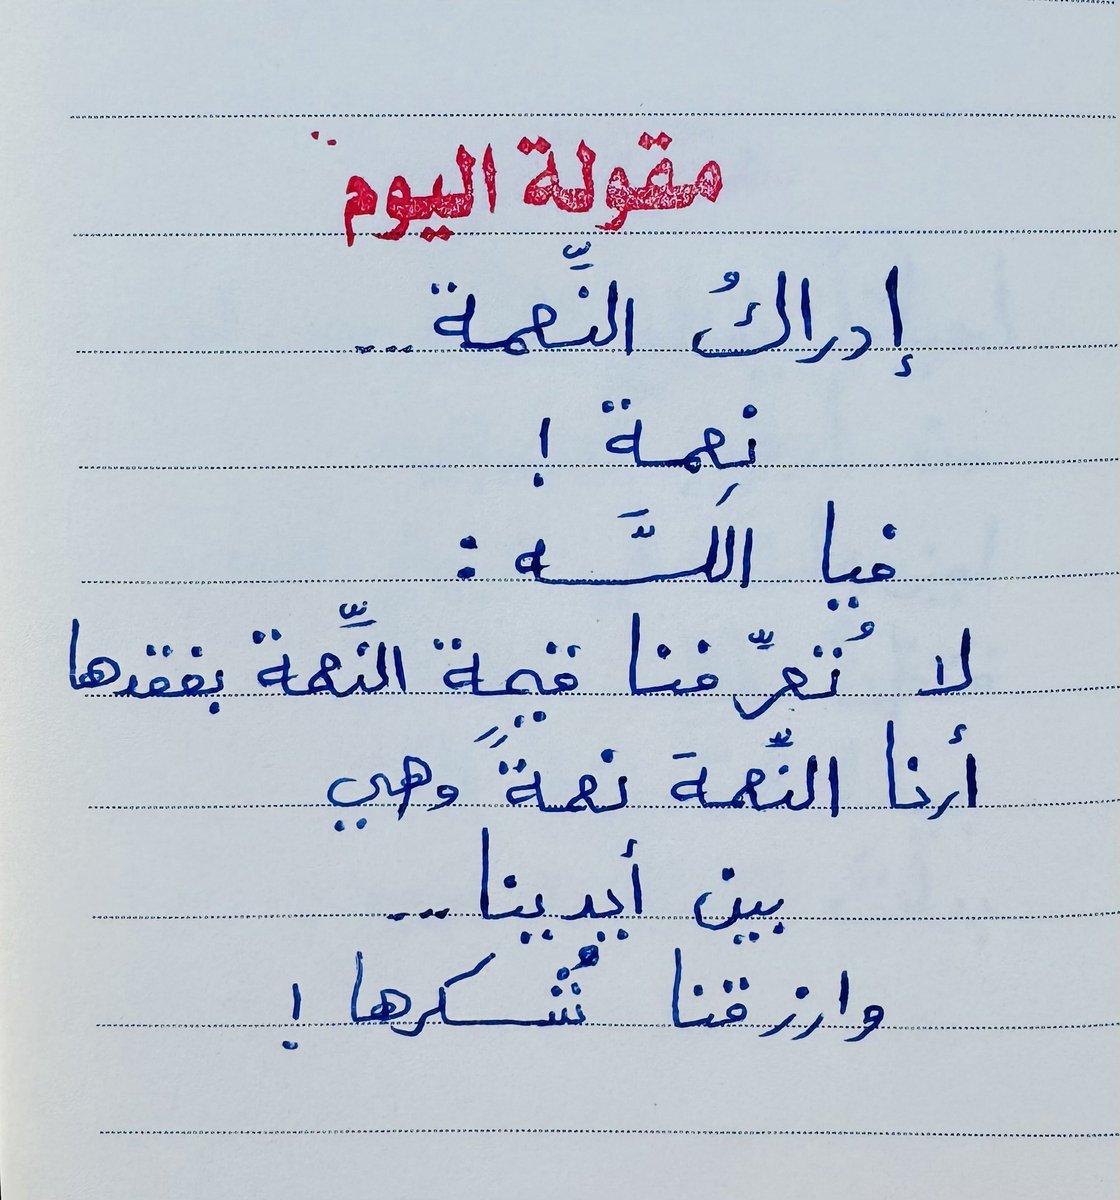 مقولة اليوم
إدراكُ النِّعمة ...
نِعمة !
فيا اللَّـه :
لا تُعرِّفنا قيمة النِّعمة بفقدها
أرنا النِّعمَة نعمةً وهي
بين أيدينا ...
وارزقنا شُكرها !